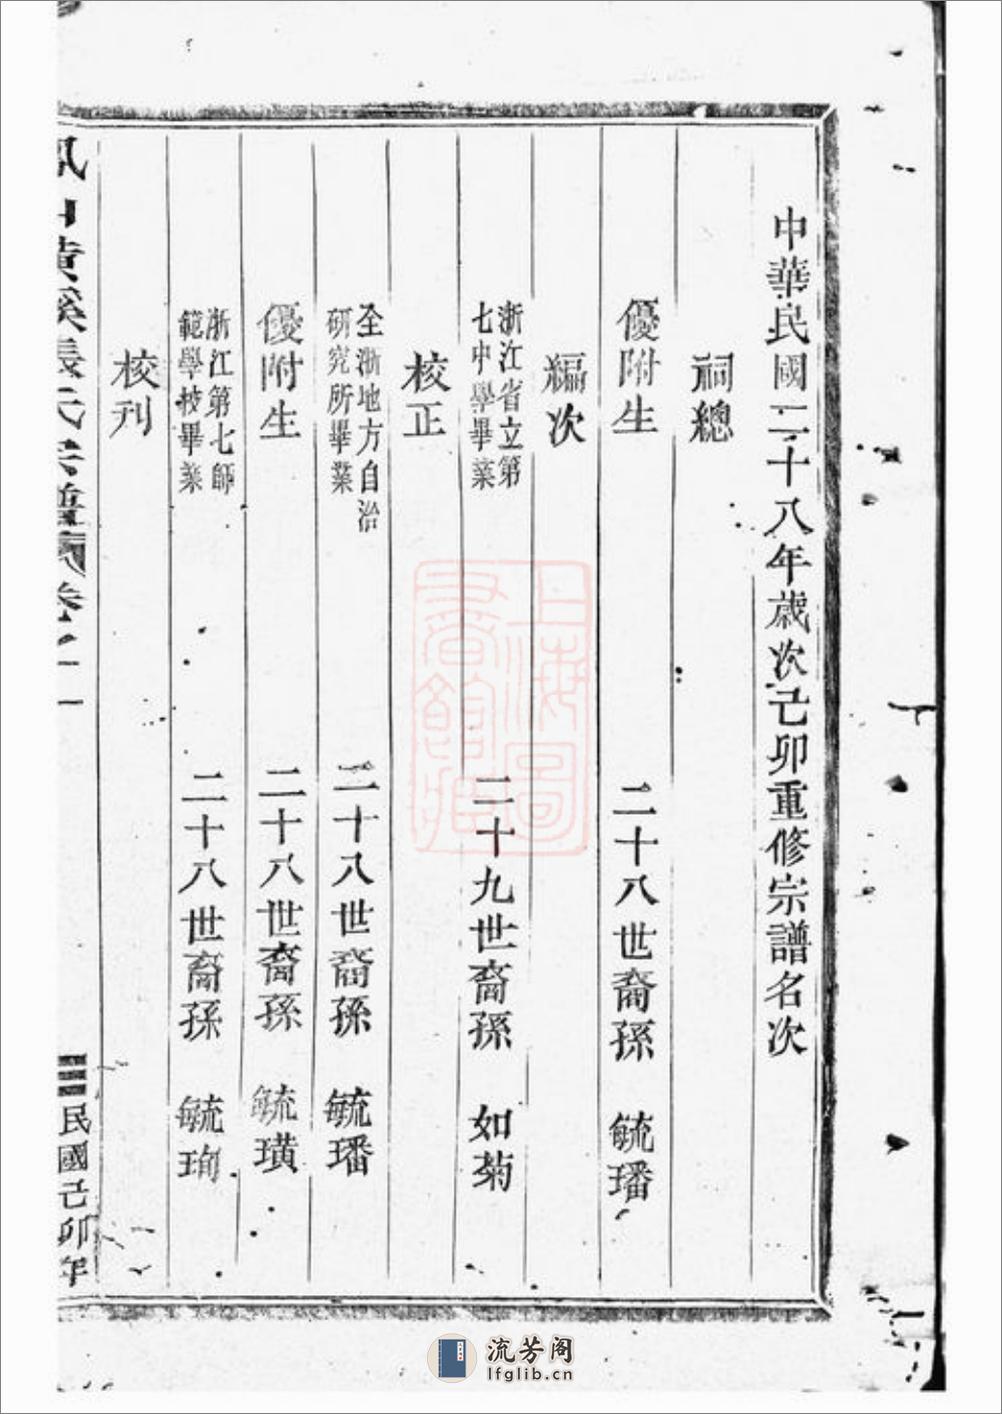 中華民國二十八年歲次己卯重修宗譜名次
祠總
優附生　二十八世裔孫　毓璠
編次
浙江省立第
七中學畢業　二十九世裔孫　如菊
校正
全浙地方自治
研究所畢業　二十八世裔孫　毓璠
優附生　二十八世裔孫　毓璜
浙江第七師
範學校畢業　二十八世裔孫　毓珣
校刊
黃溪張氏宗譜 卷之一
民國己卯年
上海圖
書館藏
流芳阁
lfglib.cn